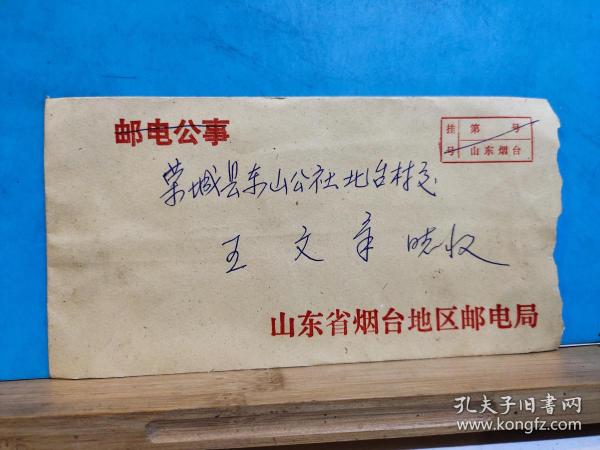 邮电公事
挂 第 号
号 山东烟台
荣城县东山公社北台村交
王文章 收
山东省烟台地区邮电局
孔夫子旧书网
www.kongfz.com